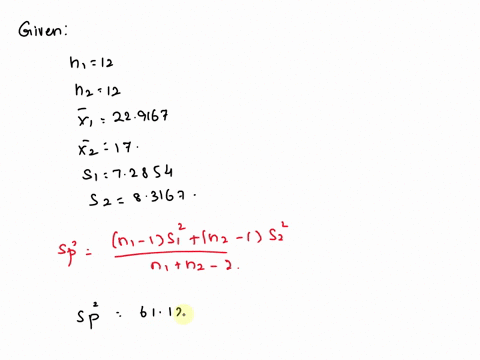 Given:
n₁ = 12
n₂ = 12
x̄₁ = 22.9167
x̄₂ = 17.
S₁ = 7.2854
S₂ = 8.3167.
Sp² = (n₁-1)S₁² + (n₂-1) S₂² / n₁+n₂-2.
Sp² = 61.12